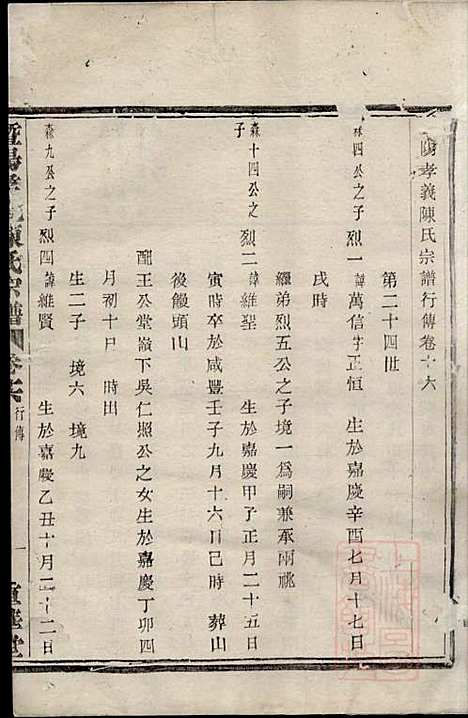 陽孝義陳氏宗譜行傳卷十六
第二十四世
森四公之子烈一諱萬信字正恒 生於嘉慶辛酉七月十七日
戌時
繼弟烈五公之子境一爲嗣兼承兩祧
森十四公之子烈二諱維聖 生於嘉慶甲子正月二十五日
寅時卒於咸豐壬子九月十六日巳時 葬山
後饅頭山
配王公堂嶺下吳仁照公之女生於嘉慶丁卯四
月初十日 時出
生二子 境六 境九
森九公之子烈四諱維賢 生於嘉慶乙丑十月二十二日
暨陽孝義陳氏宗譜 卷十六 行傳 一